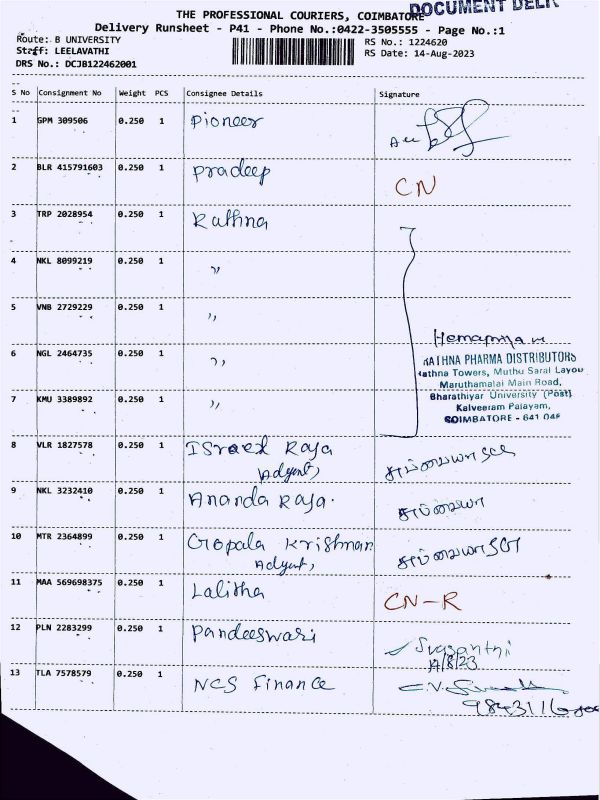 DOCUMENT DELI
THE PROFESSIONAL COURIERS, COIMBATORE
Delivery Runsheet - P41 - Phone No.:0422-3505555 - Page No.:1
Route: B UNIVERSITY
Staff: LEELAVATHI
DRS No.: DCJB122462001
RS No.: 1224620
RS Date: 14-Aug-2023
S No Consignment No Weight PCS Consignee Details Signature
1 GPM 309506 0.250 1 Pioneer
2 BLR 415791603 0.250 1 Pradeep CN
3 TRP 2028954 0.250 1 Rathna
4 NKL 8099219 0.250 1 ,,
5 VNB 2729229 0.250 1 ,,
6 NGL 2464735 0.250 1 ,,
7 KMU 3389892 0.250 1 ,,
Hemapriya
RATHNA PHARMA DISTRIBUTORS
Rathna Towers, Muthu Saral Layou
Maruthamalai Main Road,
Bharathiyar University (Post)
Kalveeram Palayam,
COIMBATORE - 641 046
8 VLR 1827578 0.250 1 Israel Raja
9 NKL 3232410 0.250 1 Ananda Raja.
10 MTR 2364899 0.250 1 Gopala Krishnan
11 MAA 569698375 0.250 1 Lalitha CN-R
12 PLN 2283299 0.250 1 Pandeeswari
14/8/23
13 TLA 7578579 0.250 1 NCS Finance